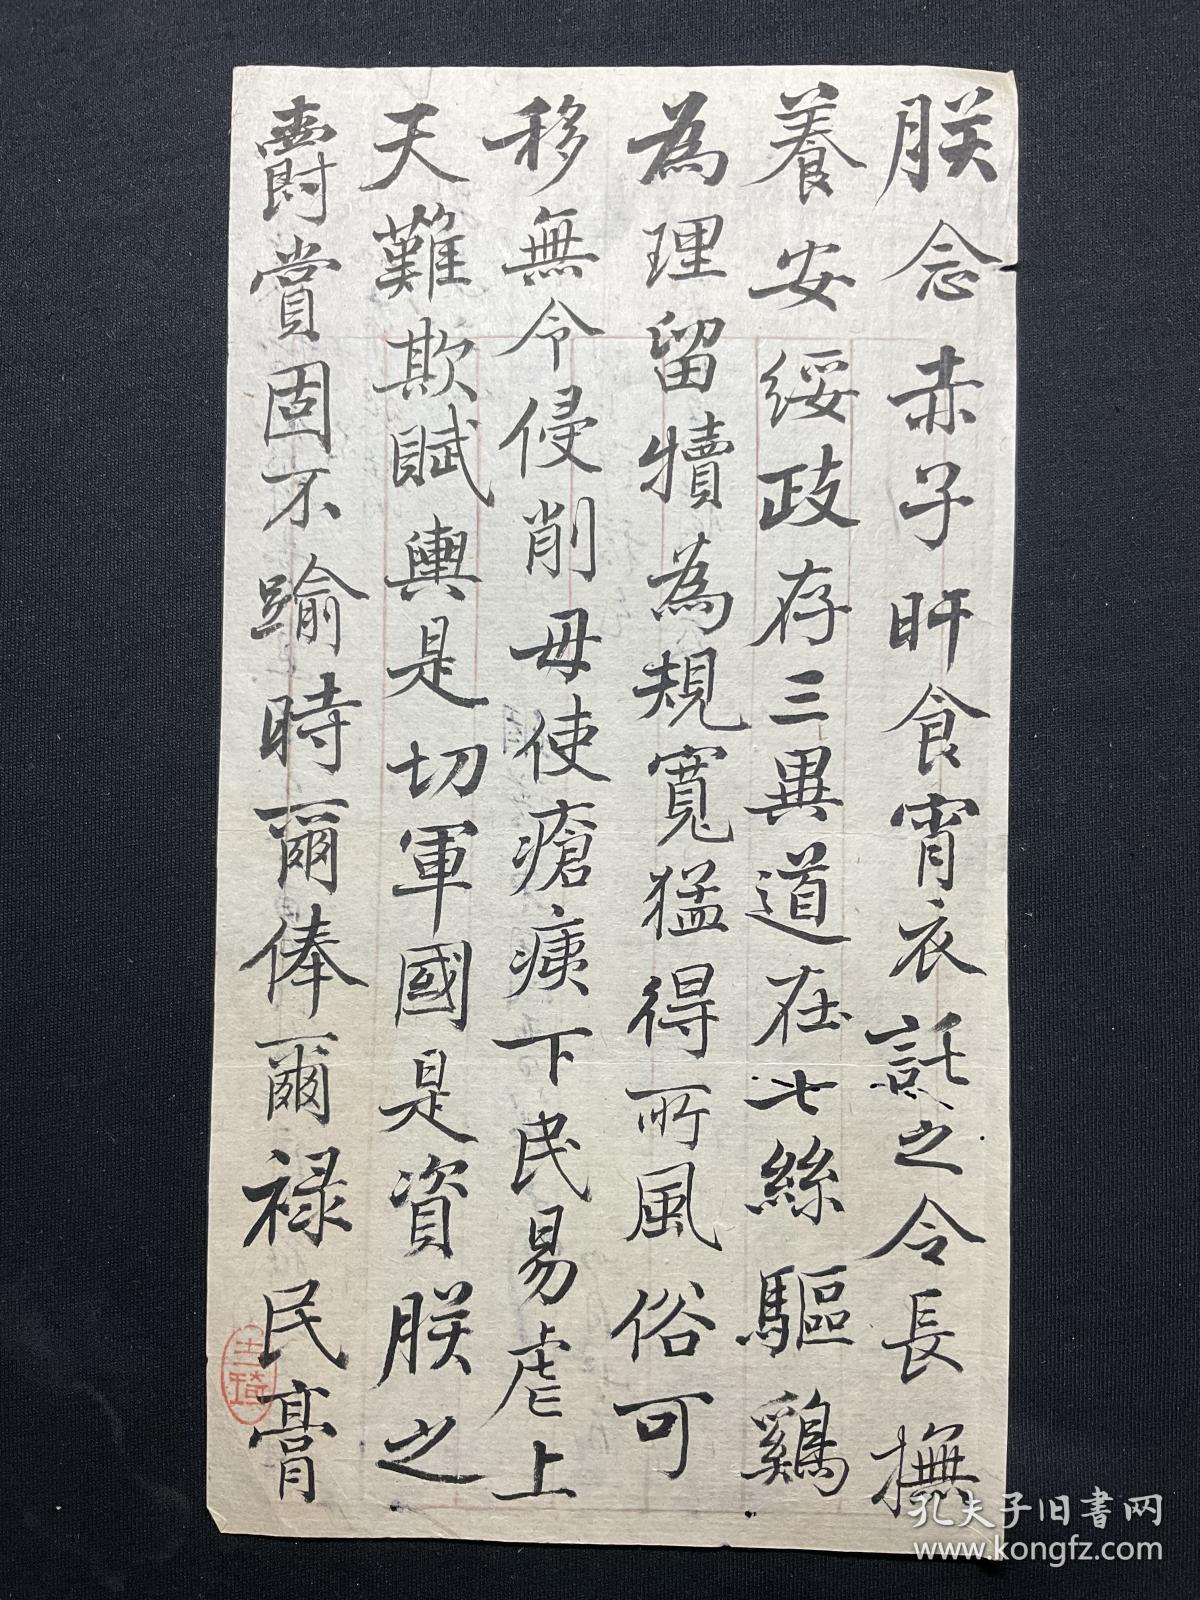 朕念赤子旰食宵衣託之令長撫
養安綏政存三異道在七絲驅鷄
為理留犢為規寬猛得所風俗可
移無令侵削毋使瘡痍下民易虐上
天難欺賦輿是切軍國是資朕之
爵賞固不踰時爾俸爾祿民膏
王琦
孔夫子旧书网
www.kongfz.com